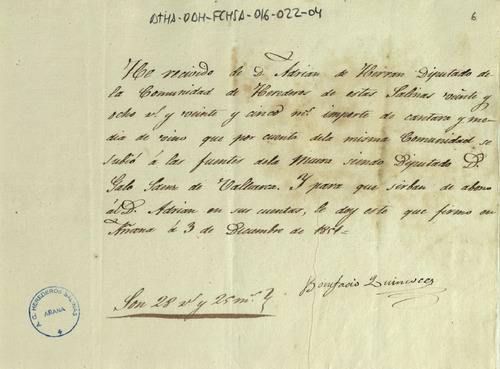 ATHA-DAH-FCHSA-016-022-04
6
He recivido de D. Adrian de Herran Diputado de
la Comunidad de Herederos de estas Salinas veinte y
ocho rs. y veinte y cinco ms. importe de cantara y me-
dia de vino que por cuenta dela misma Comunidad se
subió á las fuentes dela Muera siendo Diputado Dn.
Galo Saenz de Valluerca. Y para que sirban de abono
ál D. Adrian en sus cuentas, le doy este que firmo en
Añana á 3 de Diciembre de 1851=
Bonifacio
Son 28 rs. y 25 ms.
A.C. HEREDEROS SALINAS
AÑANA